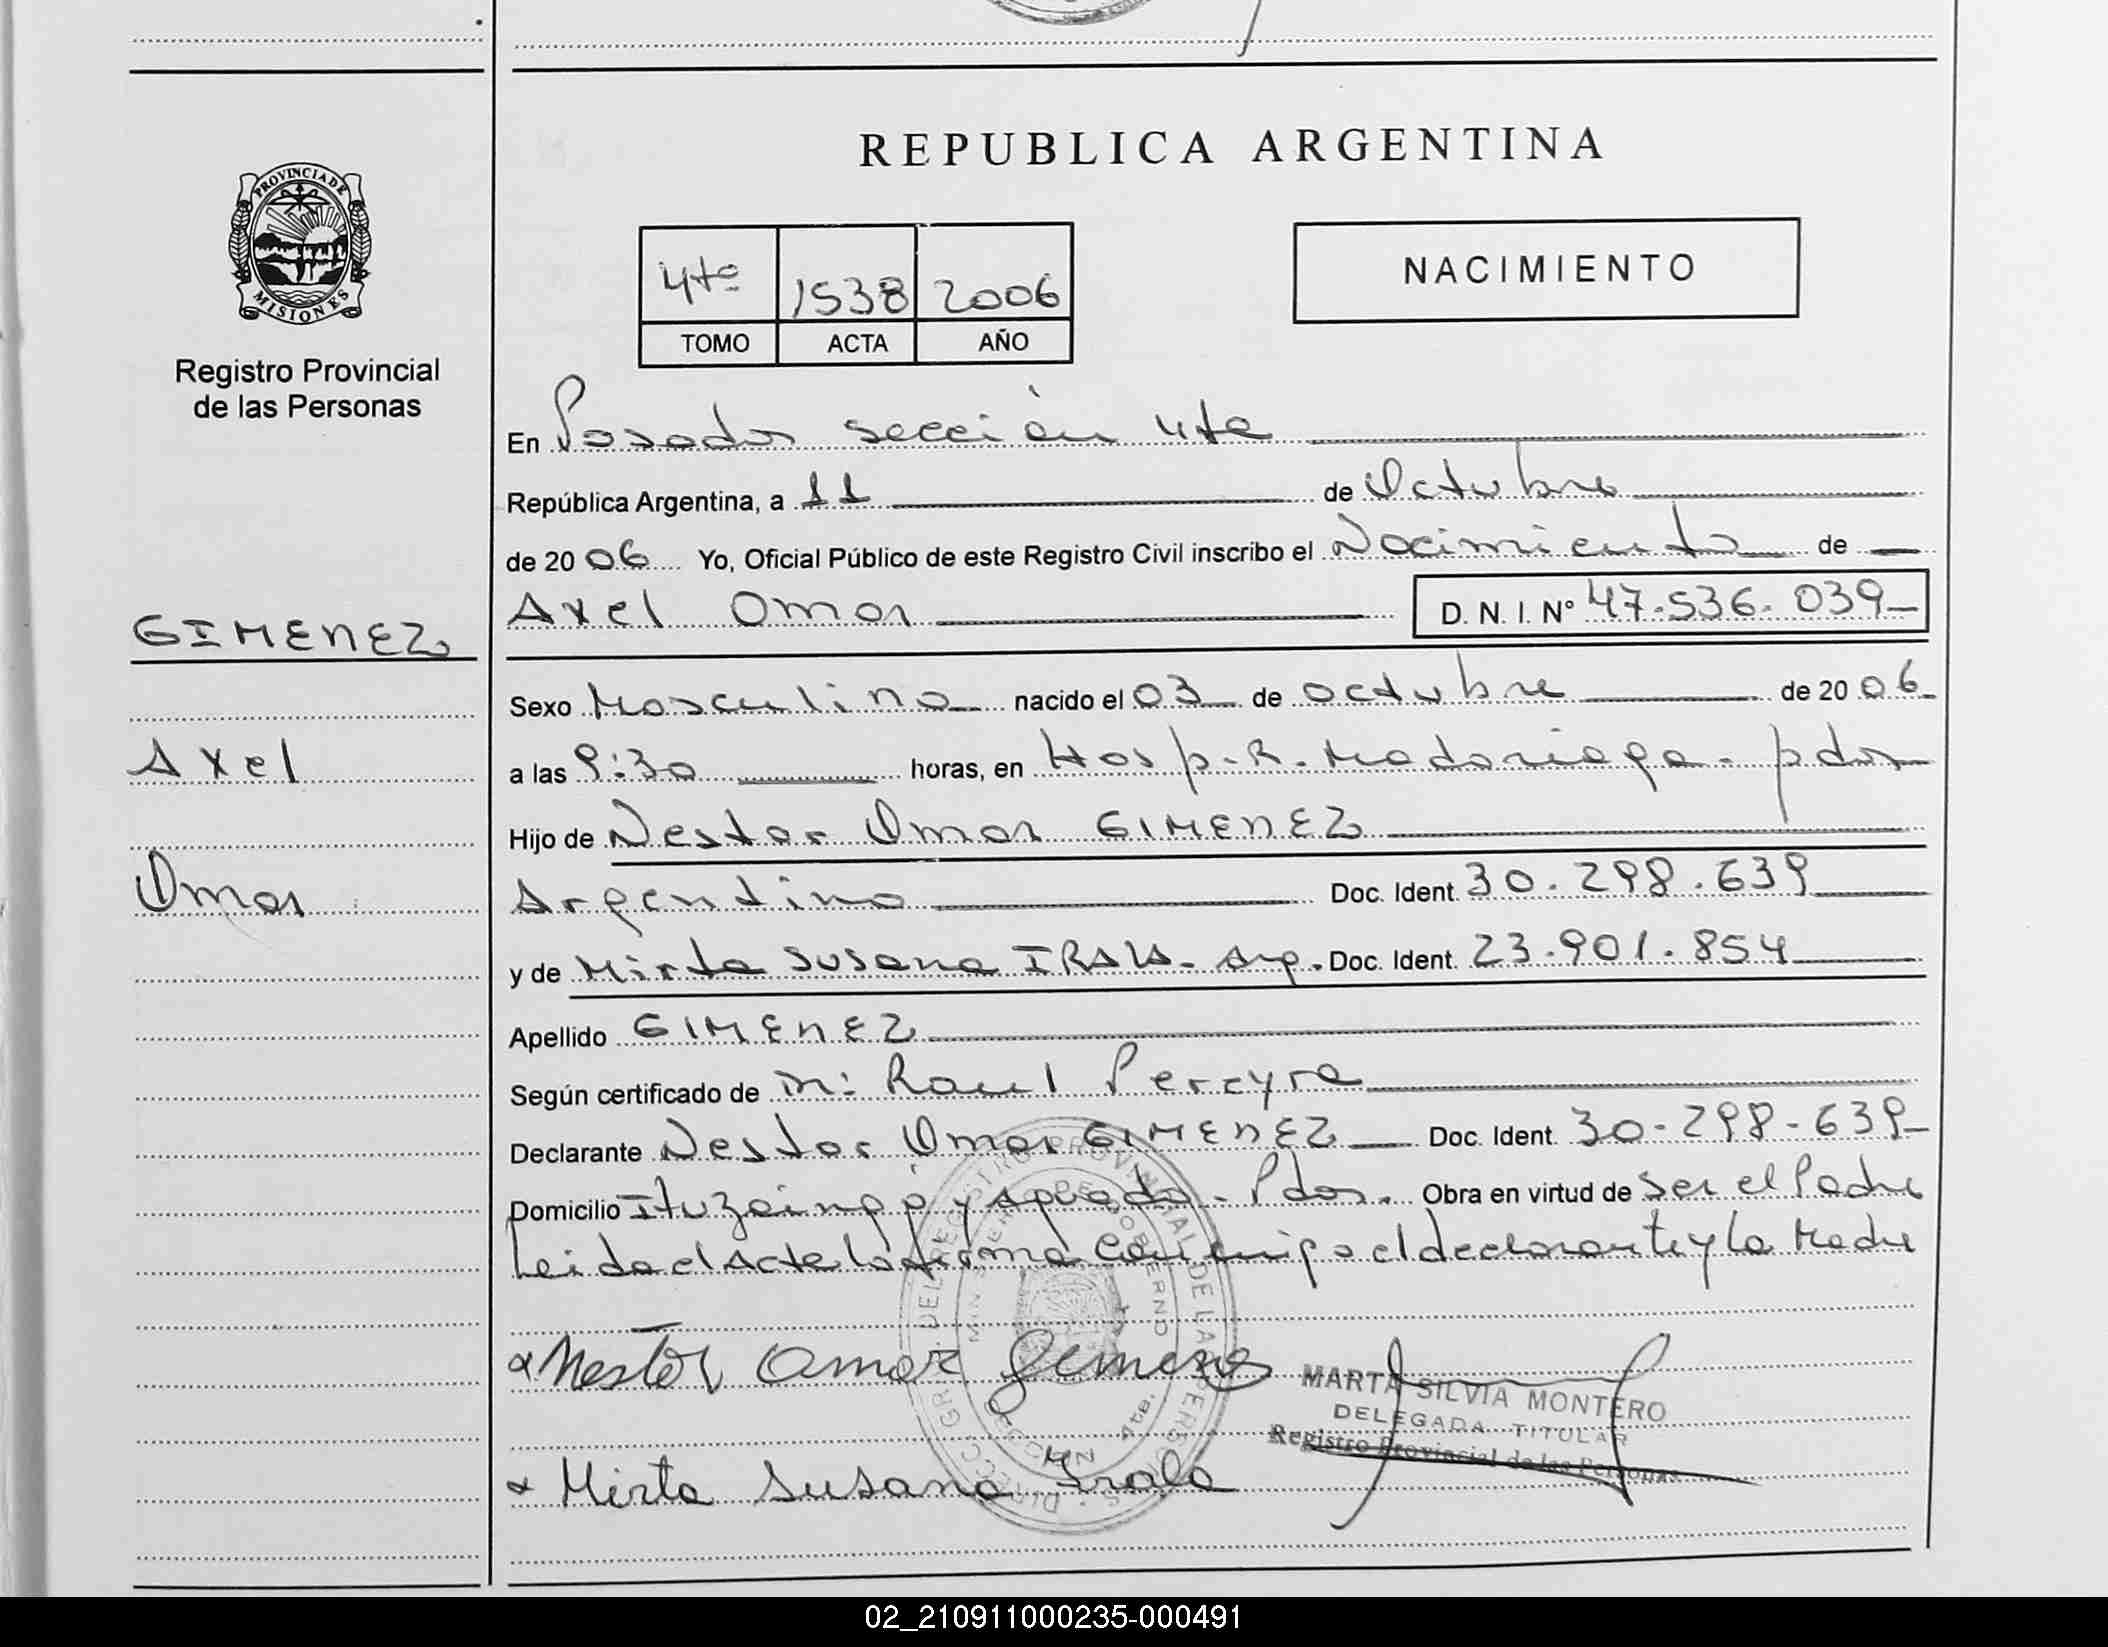 PROVINCIA DE
MISIONES
Registro Provincial
de las Personas
GIMENEZ
Axel
Omar
REPUBLICA ARGENTINA
4ta 1538 2006
TOMO ACTA AÑO
NACIMIENTO
En Posadas sección 4ta
República Argentina, a 11 de Octubre
de 2006 Yo, Oficial Público de este Registro Civil inscribo el Nacimiento de
Axel Omar D. N. I. N° 47.536.039
Sexo Masculino nacido el 03 de octubre de 2006
a las 9:30 horas, en Hosp. R. Madariaga - pdas
Hijo de Nestor Omar GIMENEZ
Argentino Doc. Ident. 30.298.639
y de Mirta Susana IRALA - Arg. Doc. Ident. 23.901.854
Apellido GIMENEZ
Según certificado de Raul Pereyra
Declarante Nestor Omar GIMENEZ Doc. Ident. 30-298-639
Domicilio Ituzaingó y Aguado - Pdas. Obra en virtud de Ser el Padre
Leida el Acta la firma conmigo el declarante y la Madre
Nestor Omar Gimenez
MARTA SILVIA MONTERO
DELEGADA TITULAR
Registro Provincial de las Personas
Mirta Susana Irala
02_210911000235-000491